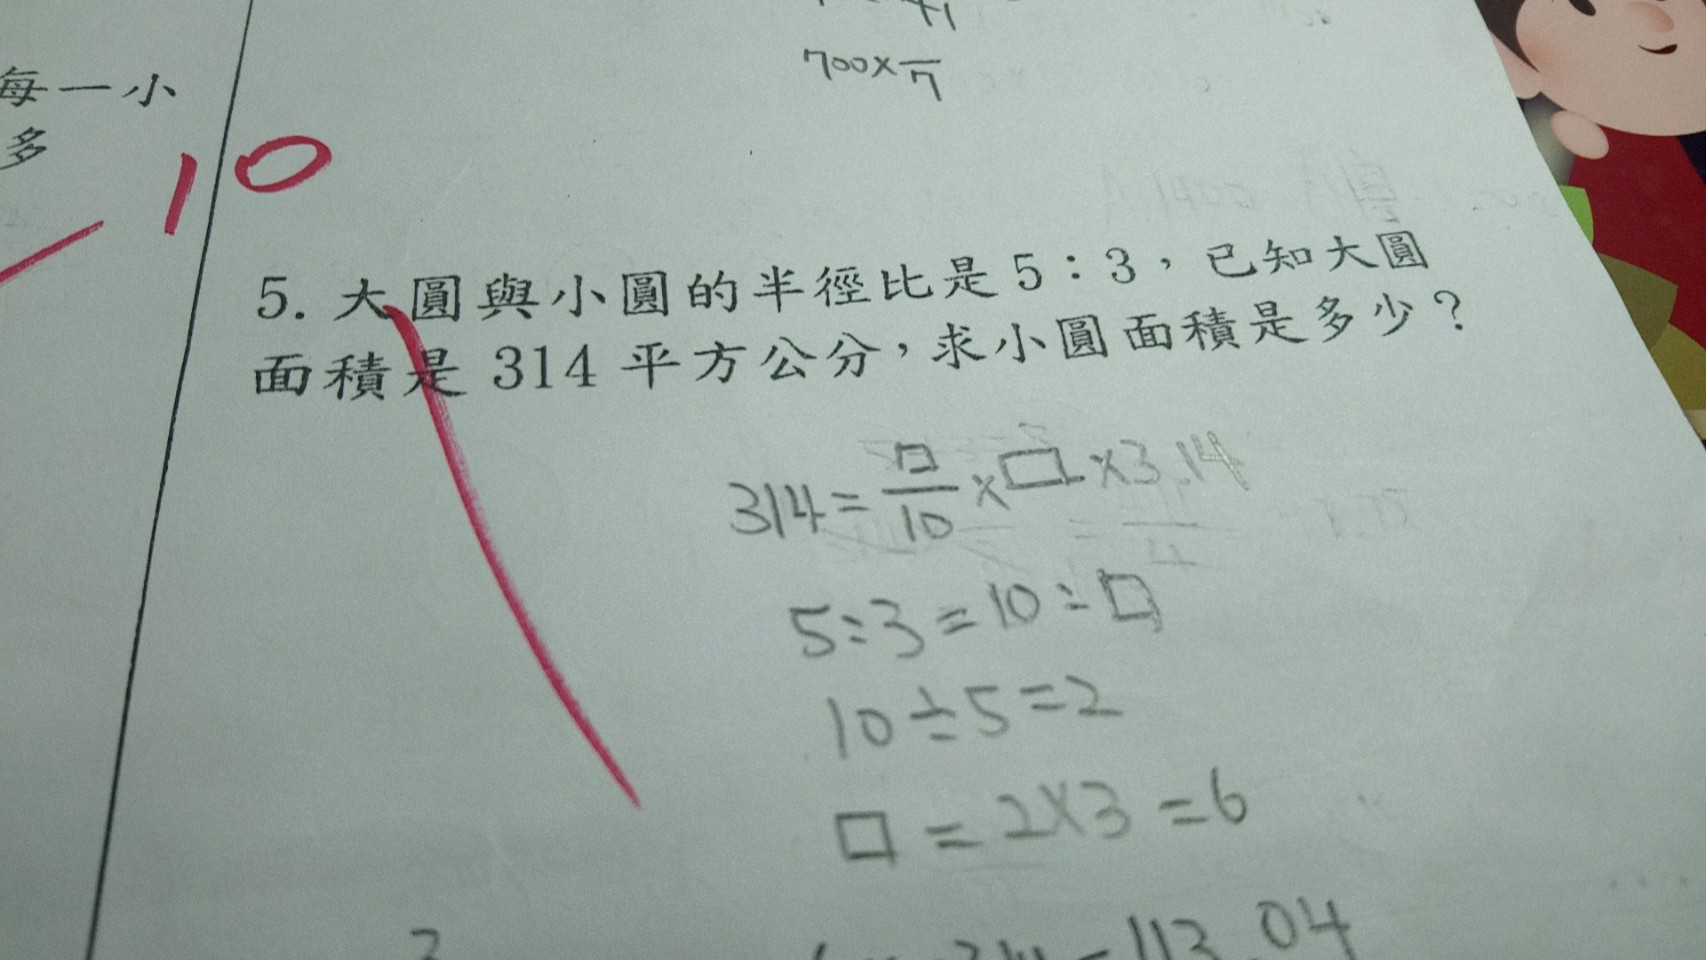 每一小
多
10
700×
7
5. 大圓與小圓的半徑比是5：3，已知大圓
面積是 314 平方公分，求小圓面積是多少？
314=□/10×□×3.14
5:3=10:□
10÷5=2
□=2×3=6
113.04